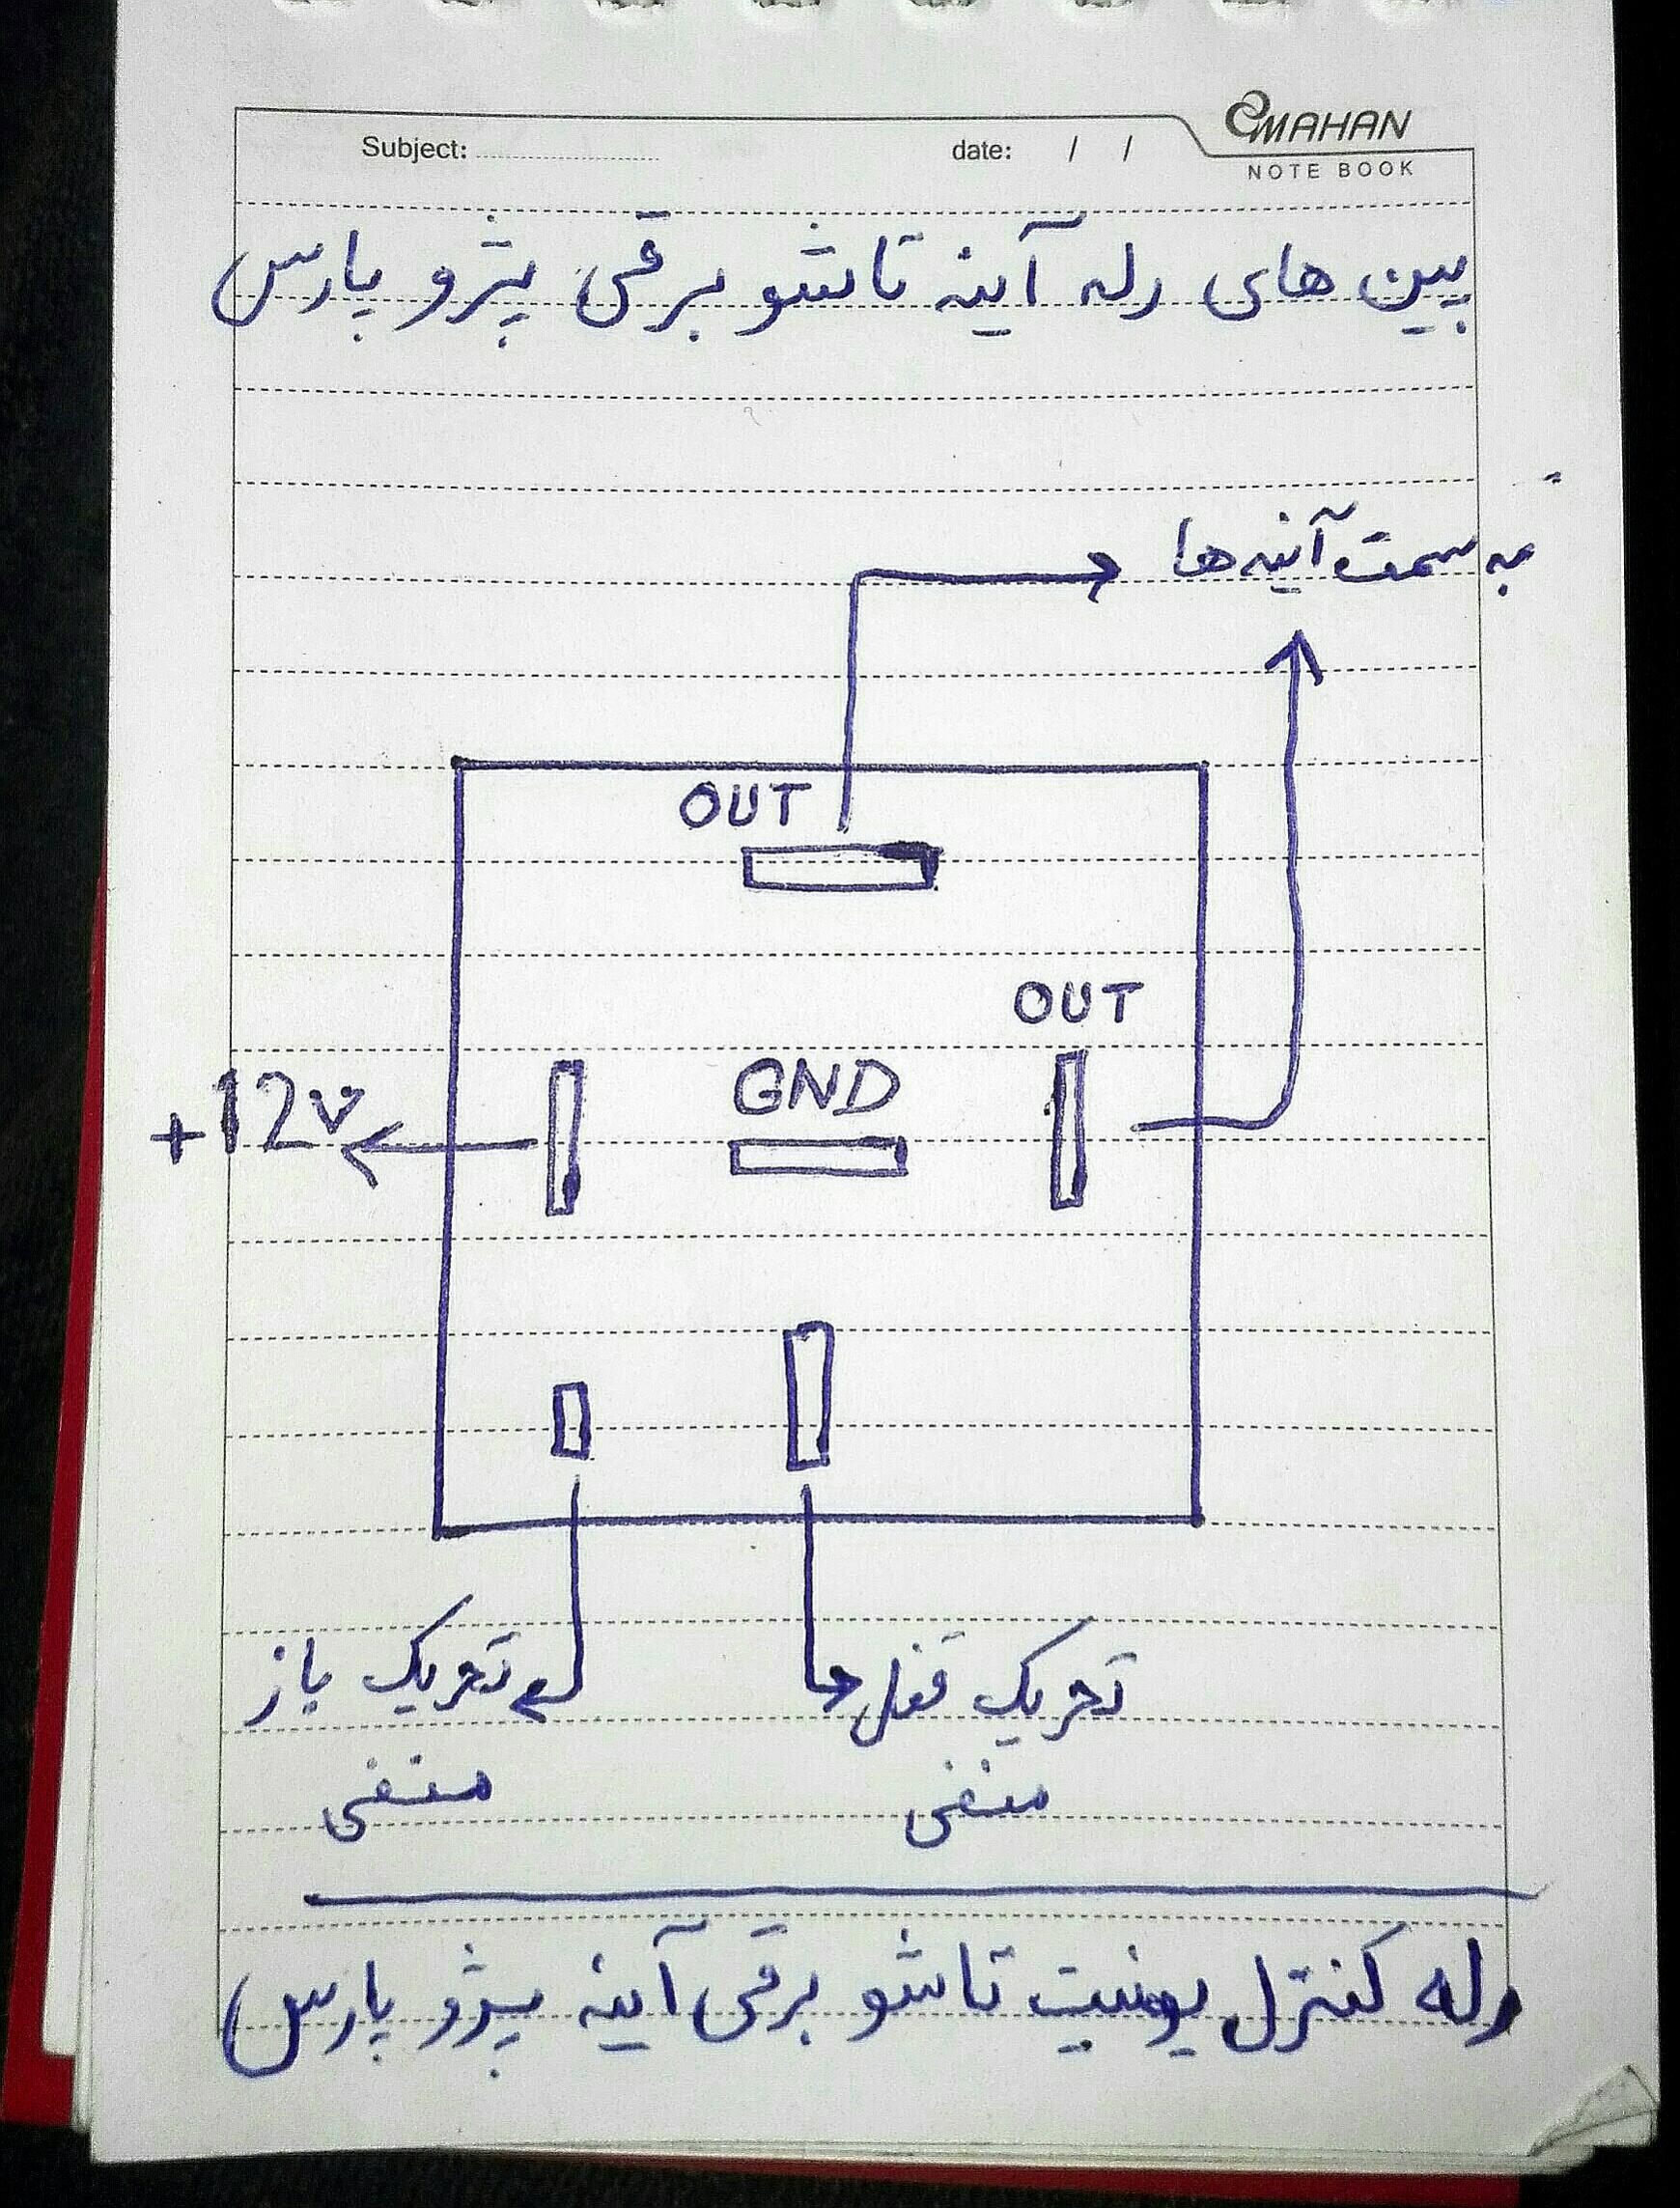 Subject: date: / /
MAHAN
NOTE BOOK
پین های رله آینه تاشو برقی پژو پارس
به سمت آینه ها
OUT
OUT
GND
+12v
تحریک قفل تحریک باز
منفی منفی
رله کنترل یونیت تاشو برقی آینه پژو پارس